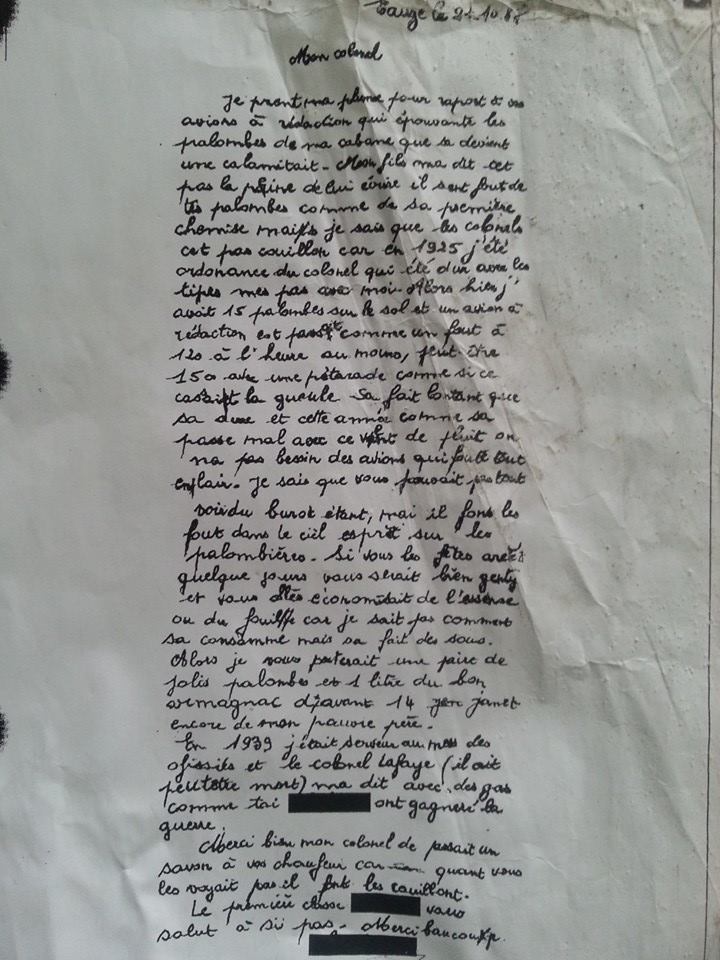 Eauze le 21.10.88
Mon colonel
Je prent ma plume pour raport à vos
avions à rédaction qui épouvante les
palombes de ma cabane que sa devient
une calamitait - Mon fils ma dit cet
pas la peine de lui écrire il sent fout de
tes palombes comme de sa première
chemise mais je sais que les colonels
cet pas couillon car en 1925 j'été
ordonance du colonel qui été dur avec les
tipes mes pas avec moi. Alors hier j'
avait 15 palombes sur le sol et un avion à
rédaction est passé comme un fout à
120 à l'heure au moins, peut être
150 avec une pétarade comme si ce
casait la gueule. Sa fait lontant que
sa dure et cette année comme sa
passe mal avec ce vent de pluit on
na pas besoin des avions qui foute tout
enlair. Je sais que vous pouvait pas tout
voir du burot étant, mai il font les
fout dans le ciel esprét sur les
palombières. Si vous les fétes aretés
quelque jours vous serait bien genty
et vous économisait de l'essense
ou du fouilffe car je sait pas comment
sa consamme mais sa fait des sous.
Alors je vous porterait une paire de
jolis palombes et 1 litre du bon
armagnac d'avant 14 janet
encore de mon pauvre père.
En 1939 j'était serveur au mess des
ofissiés et le colonel Lafaye (il ait
peutetre mort) ma dit avec des gas
comme toi ont gagneré la
guerre.
Merci bien mon colonel de passait un
savon à vos chaufeur car quant vous
les voyait pas il font les couillont.
Le premiere classe vous
salut à sii pas - Merci baucoup.